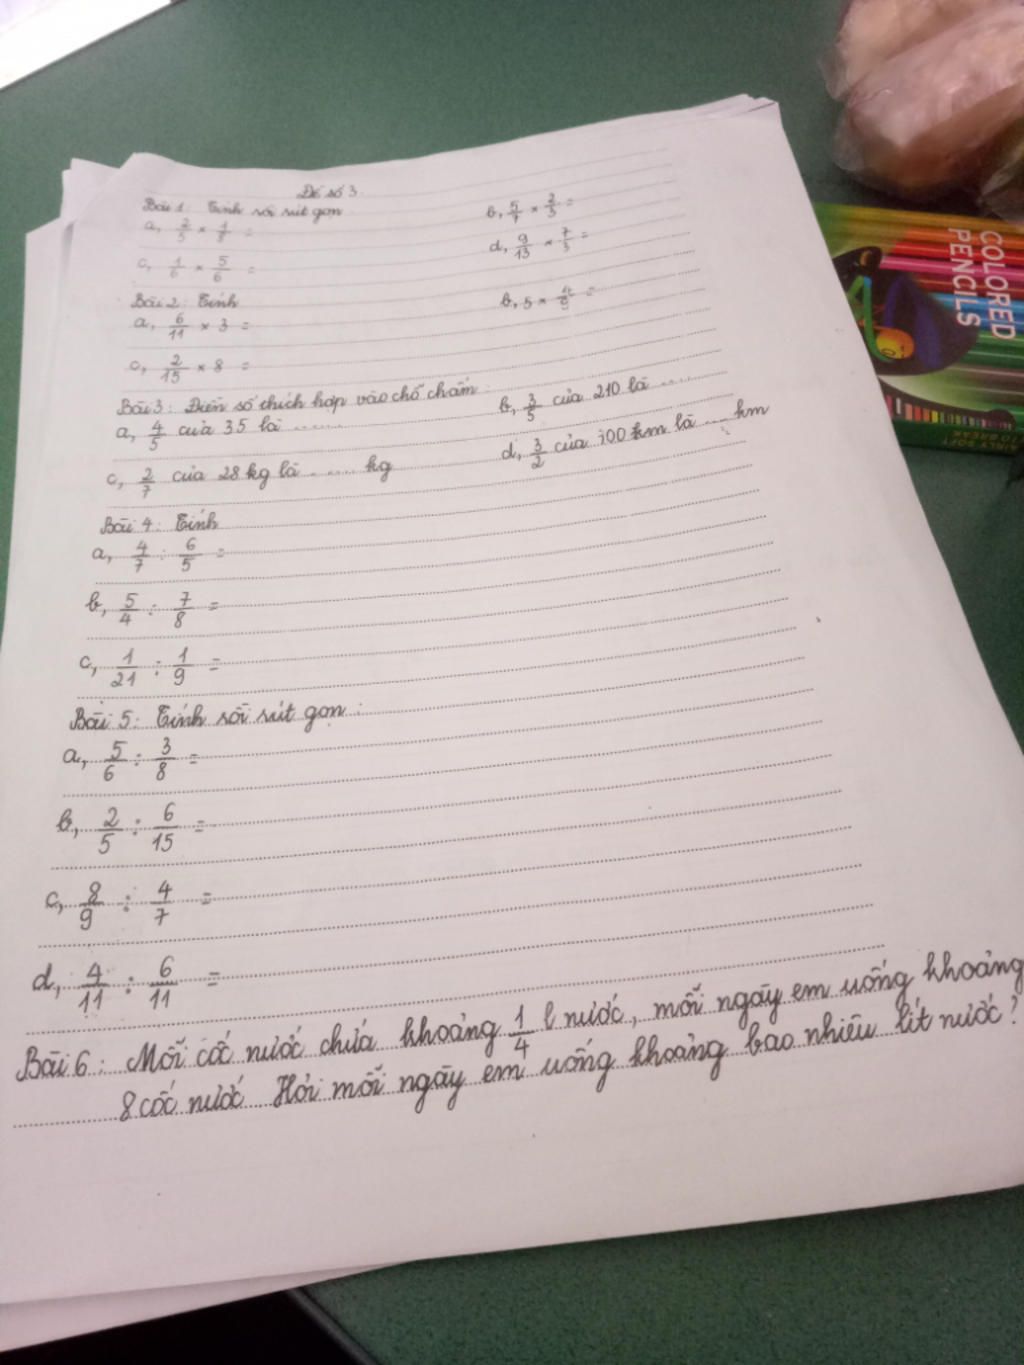 Đề số 3
Bài 1: Tính rồi rút gọn
a, 2/5 × 1/8 = b, 5/7 × 2/3 =
c, 1/6 × 5/6 = d, 9/13 × 7/3 =
Bài 2: Tính
a, 6/11 × 3 = b, 5 × 4/9 =
c, 2/15 × 8 =
Bài 3: Điền số thích hợp vào chỗ chấm:
a, 4/5 của 35 là ...... b, 3/5 của 210 là .....
c, 2/7 của 28 kg là ...... kg d, 3/2 của 100 km là .... km
Bài 4: Tính
a, 4/7 : 6/5 =
b, 5/4 : 7/8 =
c, 1/21 : 1/9 =
Bài 5: Tính rồi rút gọn:
a, 5/6 : 3/8 =
b, 2/5 : 6/15 =
c, 8/9 : 4/7 =
d, 4/11 : 6/11 =
Bài 6: Mỗi cốc nước chứa khoảng 1/4 l nước, mỗi ngày em uống khoảng
8 cốc nước Hỏi mỗi ngày em uống khoảng bao nhiêu lít nước?
COLORED
PENCILS